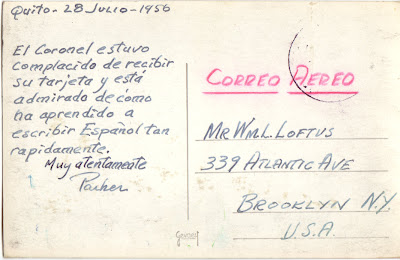 Quito-28 Julio-1956
El Coronel estuvo
complacido de recibir
su tarjeta y está
admirado de cómo
ha aprendido a
escribir Español tan
rapidamente.
Muy atentamente
Parker
CORREO AEREO
MR WM. L. LOFTUS
339 ATLANTIC AVE
BROOKLYN N.Y.
U.S.A.